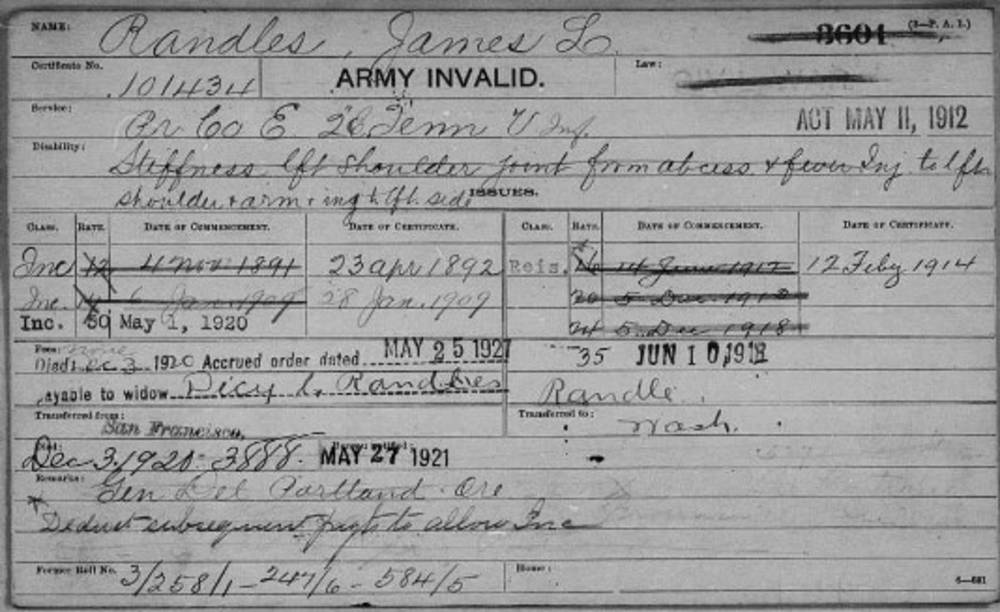 NAME: Randles, James L. 8601 (3—P. A. I.)
Certificate No. 101434 ARMY INVALID. Law:
Service: Pr Co E. 2 E. Tenn V Inf. ACT MAY 11, 1912
Disability: Stiffness lft shoulder joint from abcess & fever Inj to lft
shoulder & arm & inj to lft. side
ISSUES.
CLASS. RATE. DATE OF COMMENCEMENT. DATE OF CERTIFICATE. CLASS. RATE. DATE OF COMMENCEMENT. DATE OF CERTIFICATE.
Inc 12 4 Nov 1891 23 Apr 1892 Reis. 14 June 1912 12 Feby 1914
Inc. 14 6 Jan. 1909 28 Jan. 1909 20 5 Dec 1913
Inc. 50 May 1, 1920 24 5 Dec 1918
Fees: None 35 JUN 10, 1918
Died: Dec 3 1920 Accrued order dated MAY 25 1921
payable to widow Dicy L. Randles Randle.
Transferred from: San Francisco, Transferred to: Wash.
Dec 3, 1920 3888. Bureau notified: MAY 27 1921
Remarks: Gen Del Portland Ore
Deduct subsequent payts to allow Inc
Former Roll No. 3/258/1 — 247/6 - 584/5 Home: 6—681